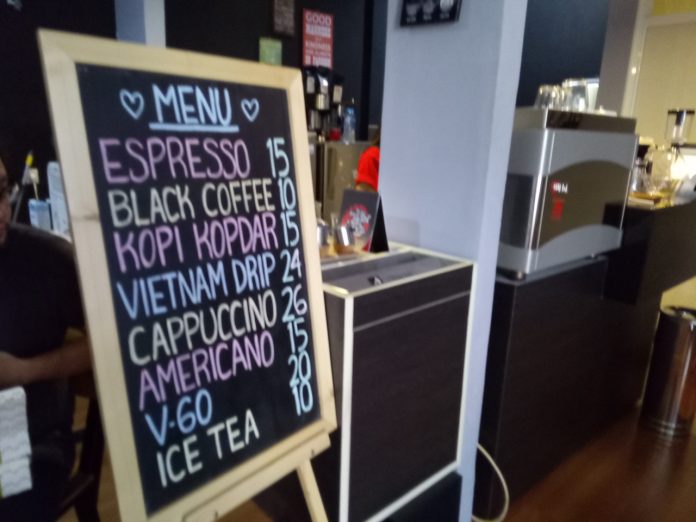 GOOD
MANNERS
KINDNESS
MENU
ESPRESSO 15
BLACK COFFEE 10
KOPI KOPDAR 15
VIETNAM DRIP 24
CAPPUCCINO 26
AMERICANO 15
V-60 20
ICE TEA 10